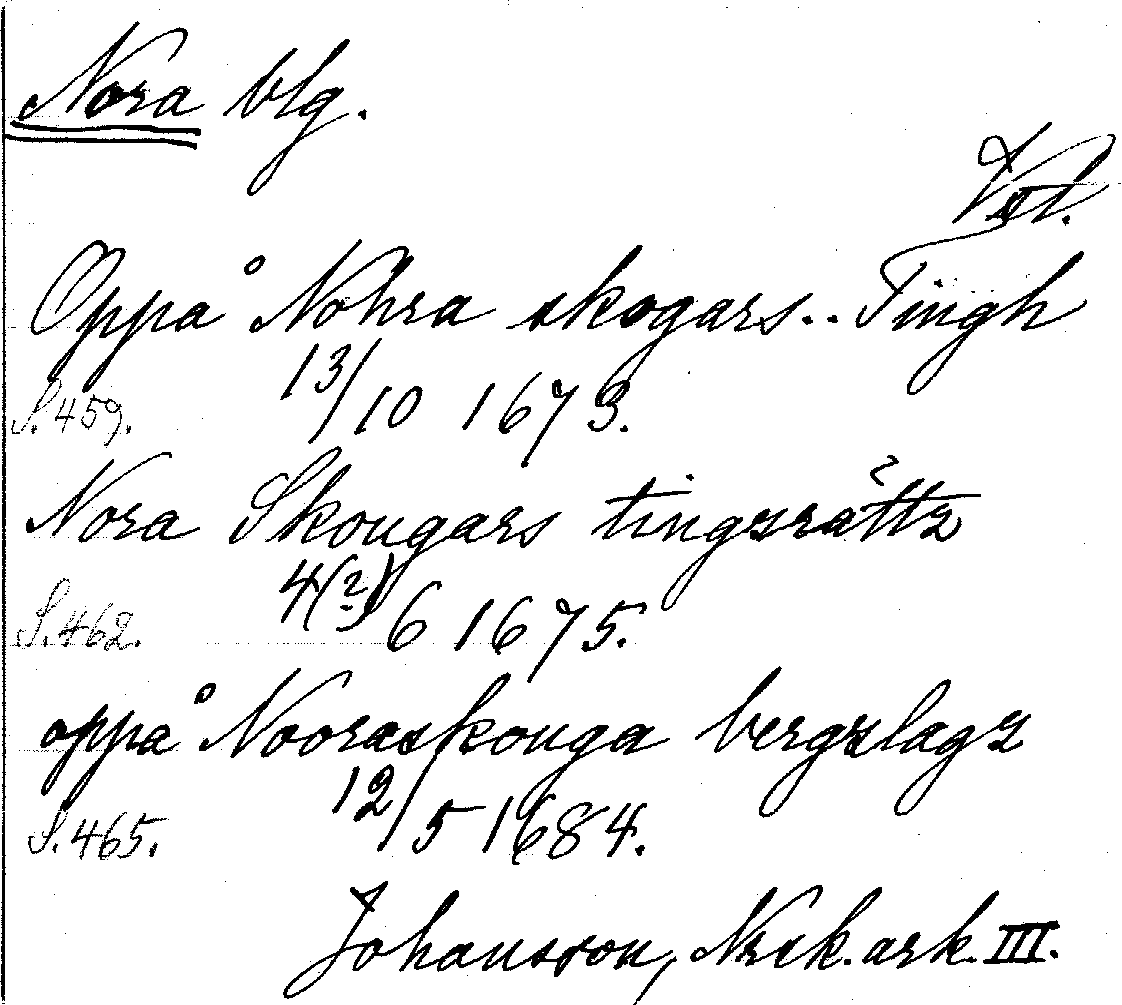 Nora blg.
Vstl.
Oppå Nohra skogars.. Tingh
13/10 1673.
S. 459.
Nora Skougars tingzrättz
4(?)/6 1675.
S. 462.
oppå Nooraskouga bergzlagz
12/5 1684.
S. 465.
Johansson, Nrsk. ark. III.